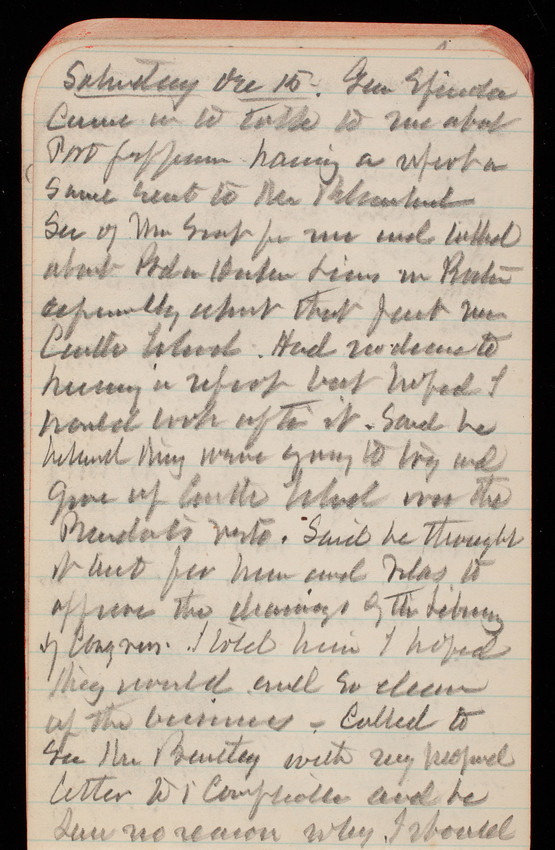 Saturday Dec 15. Gen
Came in to talk to me about
Port having a report on
Same sent to
See of for me and talked
about Harbor Lines in Boston
especially about that just
Castle Island. Had no desire to
hurry a report but hoped I
would look after it. Said he
believed they were going to try and
give up Castle Island over the
Presidents veto. Said he thought
it best for him and to
approve the drawings of the Library
of Congress. I told him I hoped
they would and so clean
up the business - Called to
See Mr Bentley with my proposed
letter to Comptroller and he
Saw no reason why I should